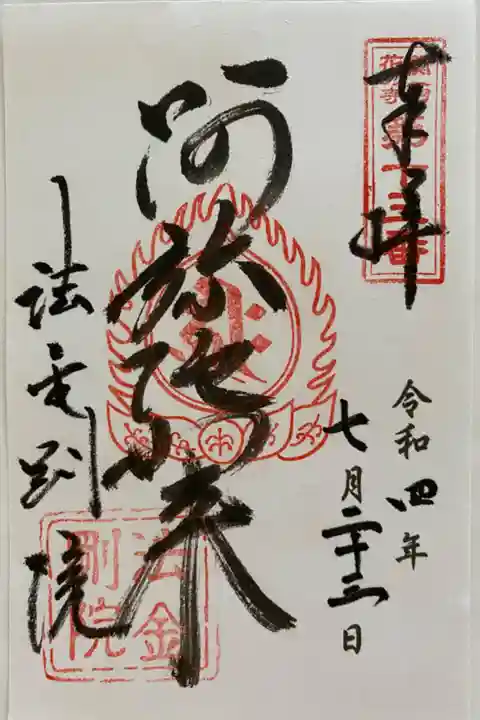 奉拝
関西花の寺第十三番
令和四年
七月二十三日
阿弥陀如来
法金剛院
法金剛院